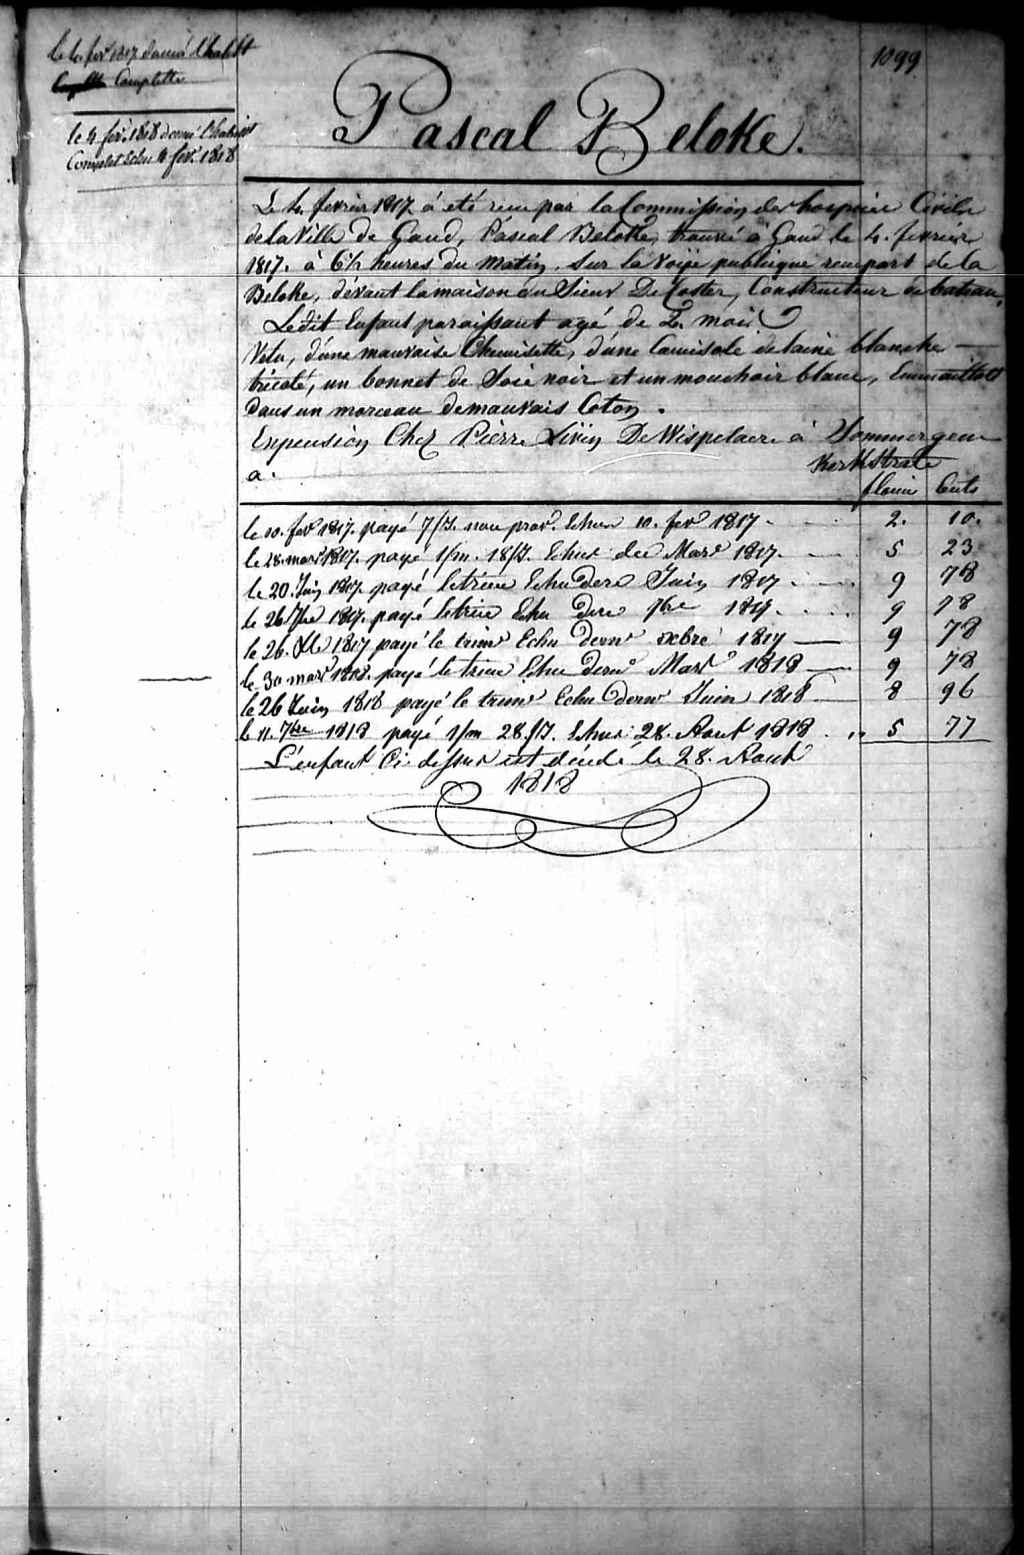 le 4. fevr 1817 donné l'habillt
Complette
le 4 fevr. 1818 donné l'habillt
Complet Echu 4 fevr. 1818
1099
Pascal Beloke.
Le 4. fevrier 1817 à eté recu par la Commission des hospices Civils
de la Ville de Gand, Pascal Beloke, trouvé à Gand le 4. fevrier
1817. à 6½ heures du matin, sur la Voije publique rempart de la
Beloke, dévant la maison du Sieur De Coster, Constructeur de bateau.
Ledit Enfant paraissant agé de 2. mois
Vetu, d'une mauvaise Chemisette, d'une Camisole de laine blanche
tricoté, un bonnet de Soie noir et un mouchoir blanc, Emmailloté
dans un morceau de mauvais Coton.
Enpension Chez Pierre Livin De Wispelaere à Sommergem
Kerkstrate
a.
florin Cents
le 10. fevr 1817. payé 7/J. nou prov. Echu 10. fevr 1817. 2. 10.
le 28. mars 1817. payé 1/m. 18/J. Echus Mars 1817. 5 23
le 20 Juin 1817. payé letrime Echu dere Juin 1817. 9 78
le 26 7bre 1817. payé letrime Echu dere 7bre 1817. 9 78
le 26. Xbre 1817 payé le trime Echu dernr Xbre 1817 9 78
le 30 mars 1818. payé le trime Echu dernr Mars 1818 9 78
le 26 Juin 1818 payé le trime Echu dernr Juin 1818 8 96
le 11. 7bre 1818 payé 1/m 28/J. Echus 28. Aout 1818. 5 77
L'enfant Ci dessus est décédé le 28. Aout
1818